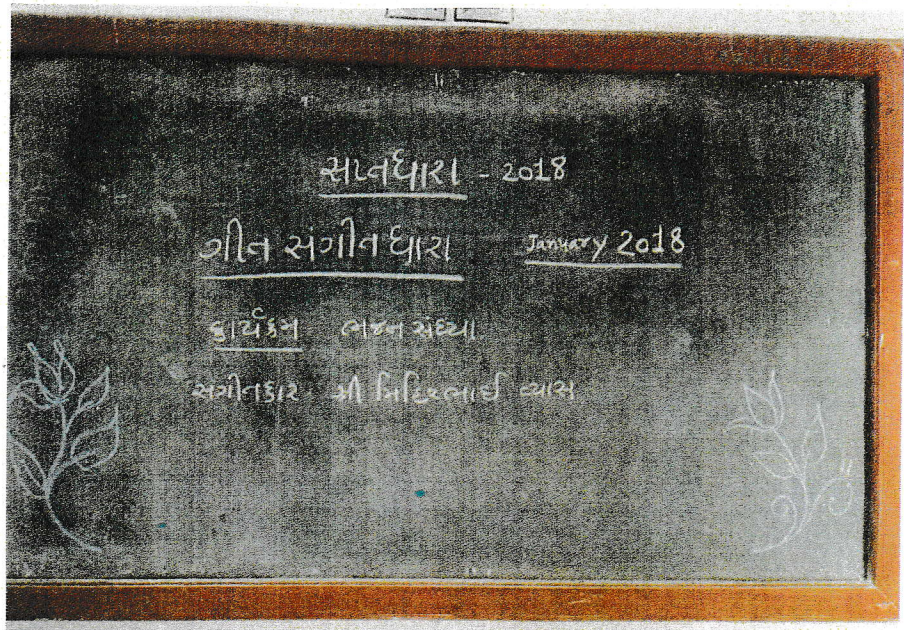 સપ્તધારા - 2018
ગીત સંગીત ધારા January 2018
કાર્યક્રમ ભજન સંધ્યા
સંગીતકાર શ્રી મિહિરભાઈ વ્યાસ